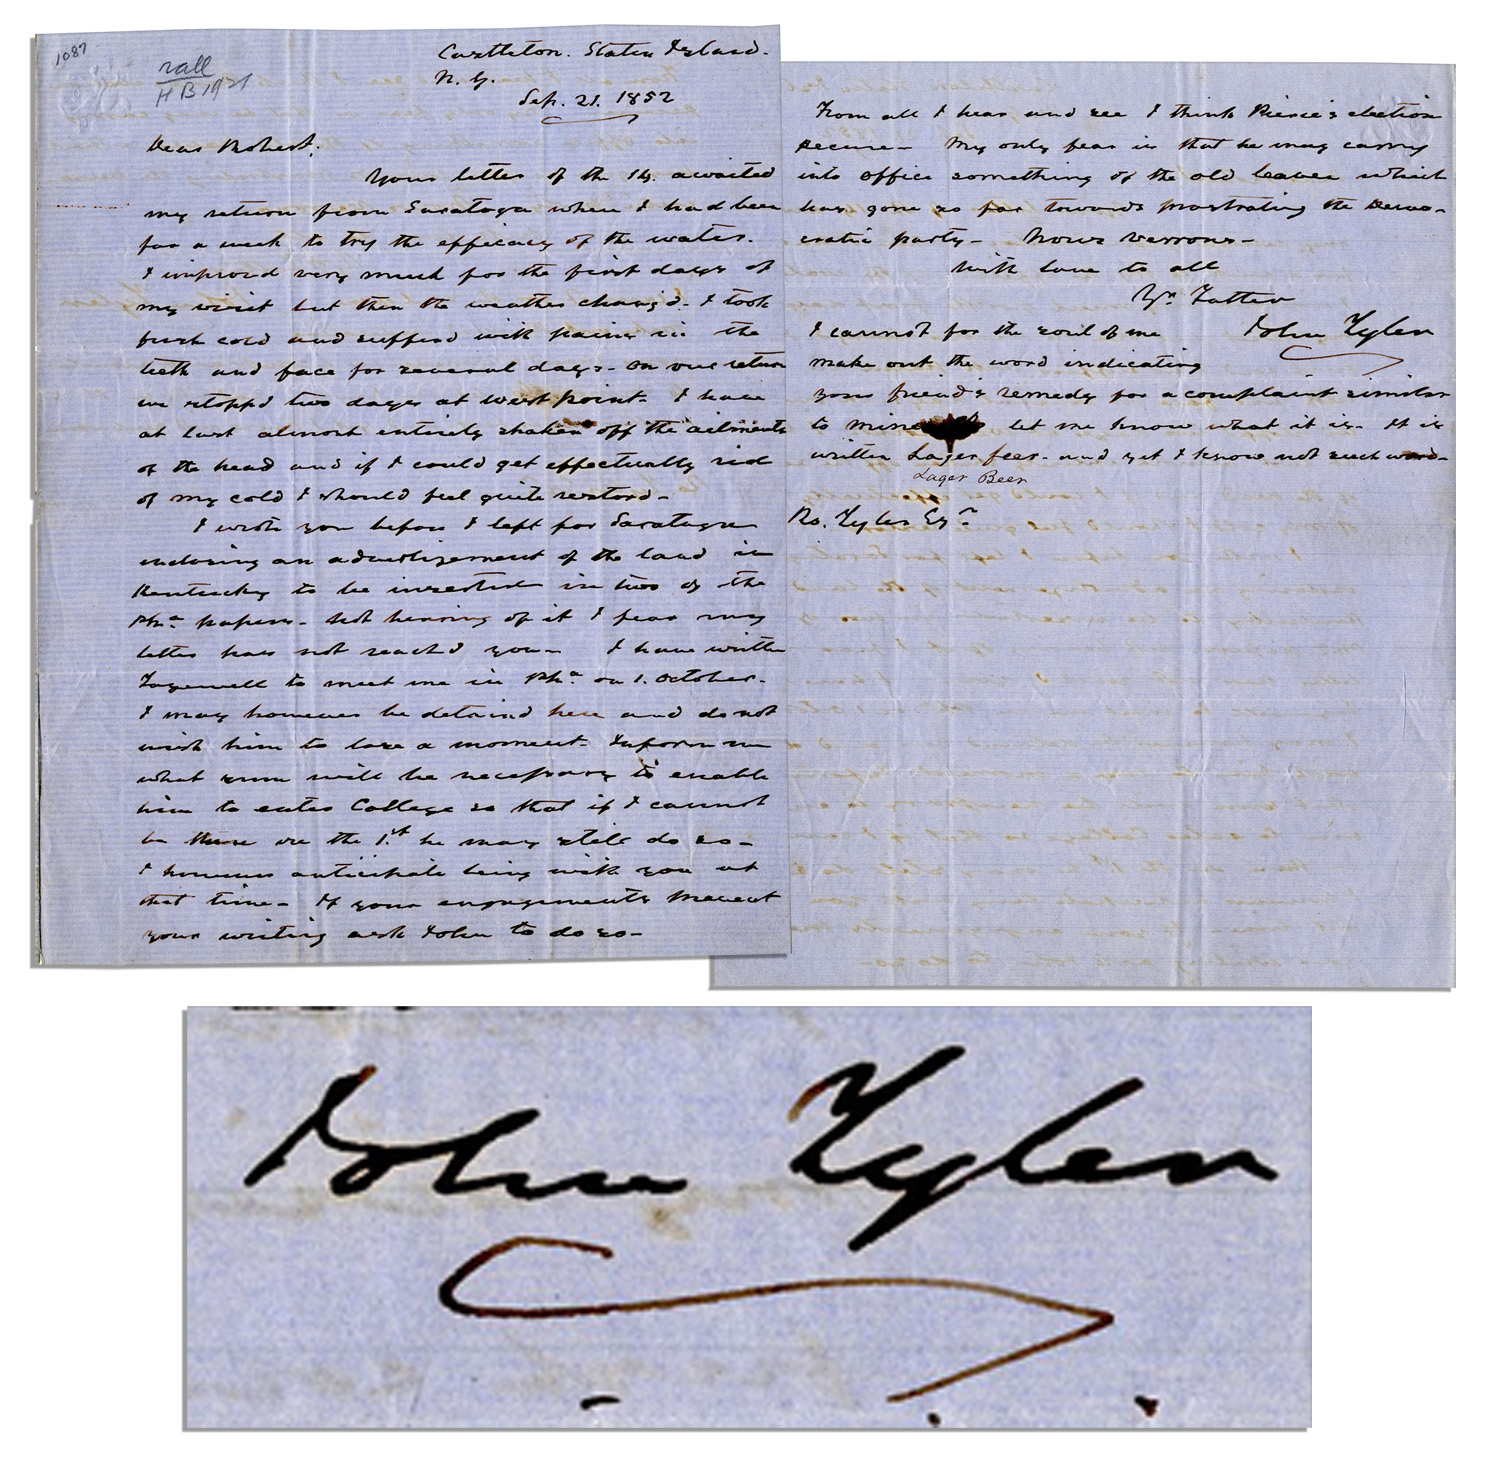 1087
rall
HB1921
Castleton. Staten Island.
N. Y.
Sep. 21. 1852
Dear Robert,
Your letter of the 14. awaited
my return from Saratoga where I had been
for a week to try the efficacy of the water.
I improved very much for the first days of
my visit but then the weather chang'd. I took
fresh cold and suffered with pains in the
teeth and face for several days. On our return
we stopp'd two days at West point. I have
at last almost entirely shaken off the ailments
of the head and if I could get effectually rid
of my cold I should feel quite restord-
I wrote you before I left for Saratoga
enclosing an advertizement of the land in
Kentucky to be inserted in two of the
Pha. papers. Not hearing of it I fear my
letter has not reach'd you- I have written
Tazewell to meet me in Pha. on 1. October.
I may however be detain'd here and do not
wish him to lose a moment. Inform me
what sum will be necessary to enable
him to enter College so that if I cannot
be there on the 1st. he may still do so-
I however anticipate being with you at
that time- If your engagements prevent
your writing ask John to do so-
From all I hear and see I think Pierce's election
secure- My only fear is that he may carry
into office something of the old leaven which
has gone so far towards prostrating the Demo-
cratic party- Nous verrons-
With love to all
Yr. Father
John Tyler
I cannot for the soul of me
make out the word indicating
your friend's remedy for a complaint similar
to mine let me know what it is. It is
written Lager feer. and yet I know not such word-
Lager Beer
Ro. Tyler Esqr.
John Tyler